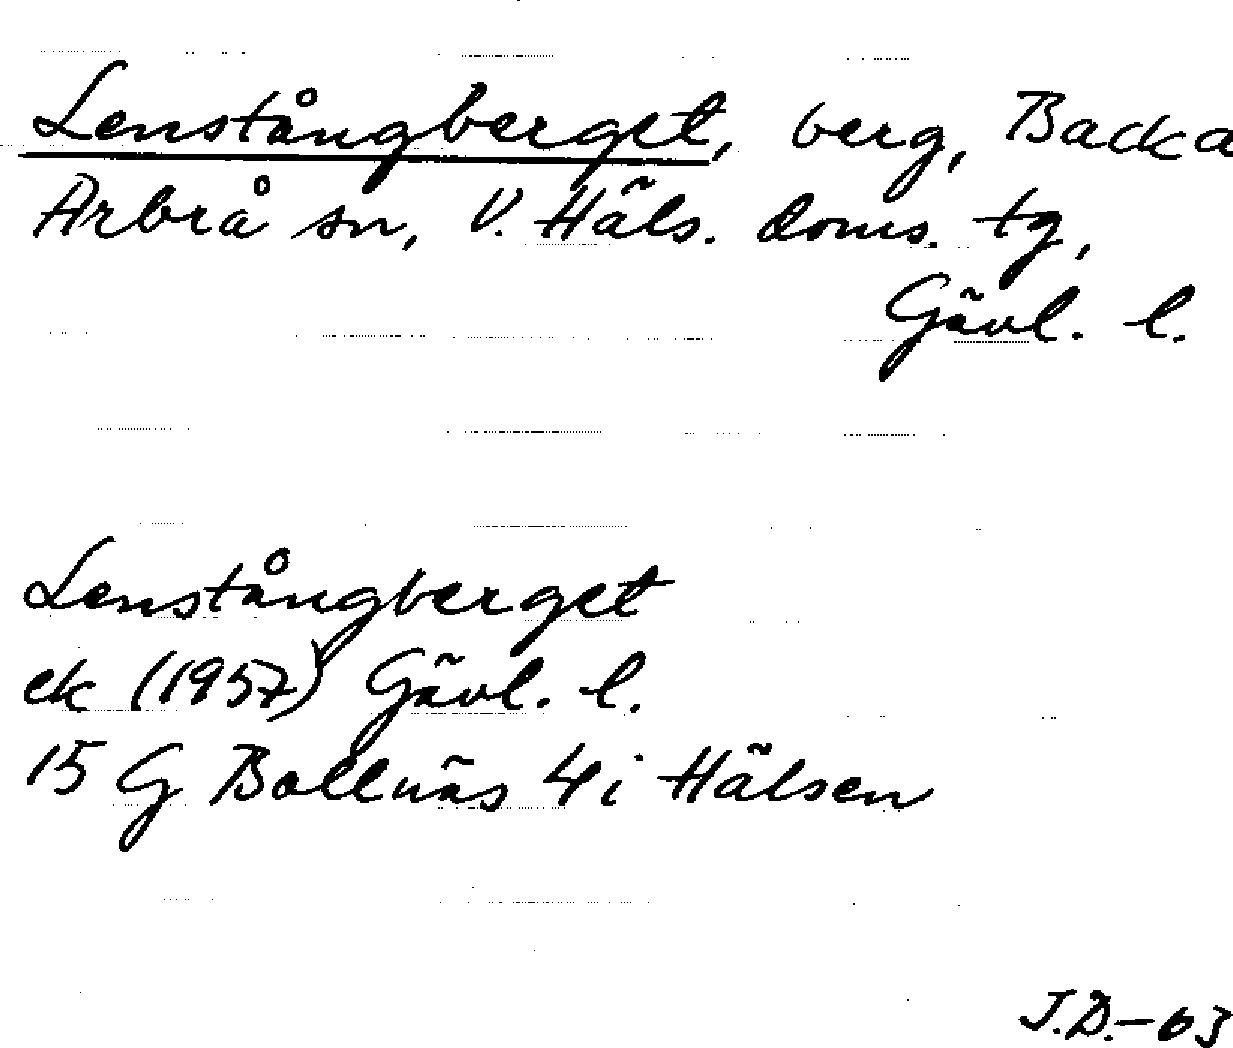 Lenstångberget, berg, Backa
Arbrå sn, V. Häls. doms. tg,
Gävl. l.
Lenstångberget
ek (1957) Gävl. l.
15 G Bollnäs 4i Hälsen
J.D.-63